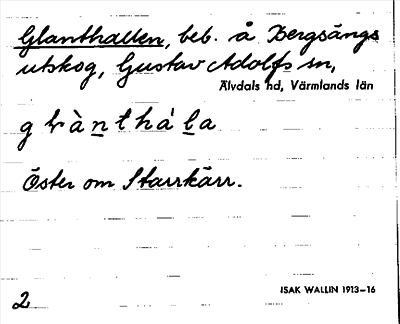 Glanthallen, beb. å Bergsängs
utskog, Gustav Adolfs sn,
Älvdals hd, Värmlands län
g làn̲t há l̲a
Öster om Starrkärr.
ISAK WALLIN 1913–16
2